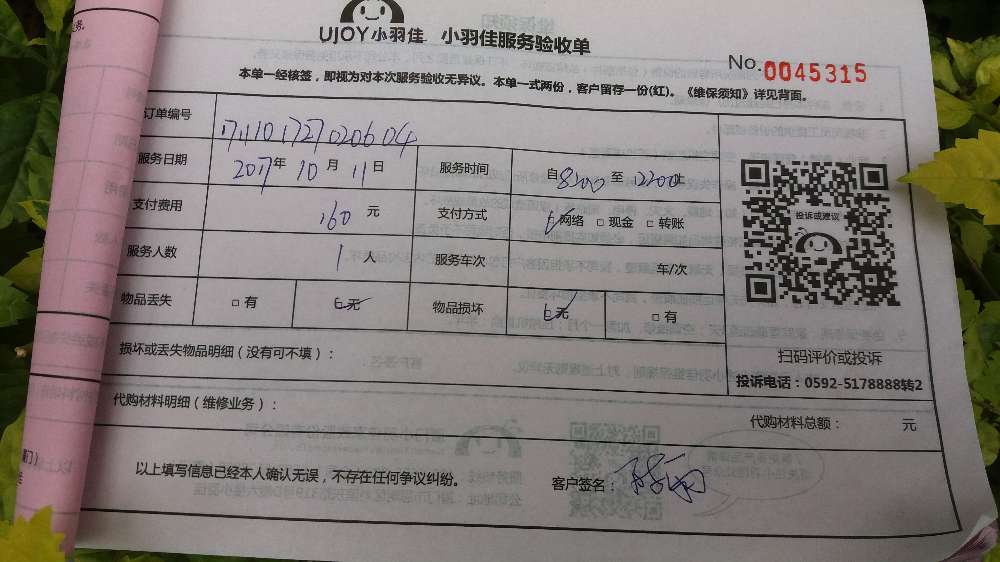 UJOY小羽佳 小羽佳服务验收单
No.0045315
本单一经核签，即视为对本次服务验收无异议。本单一式两份，客户留存一份(红)。《维保须知》详见背面。
订单编号
服务日期 2017年 10月 11日 服务时间 自8:00 至 12:00止
支付费用 160 元 支付方式 网络 □ 现金 □ 转账
服务人数 1 人 服务车次 车/次
物品丢失 □ 有 无 物品损坏 无 □ 有
损坏或丢失物品明细（没有可不填）：
代购材料明细（维修业务）：
代购材料总额： 元
以上填写信息已经本人确认无误，不存在任何争议纠纷。 客户签名：
投诉或建议
扫码评价或投诉
投诉电话：0592-5178888转2